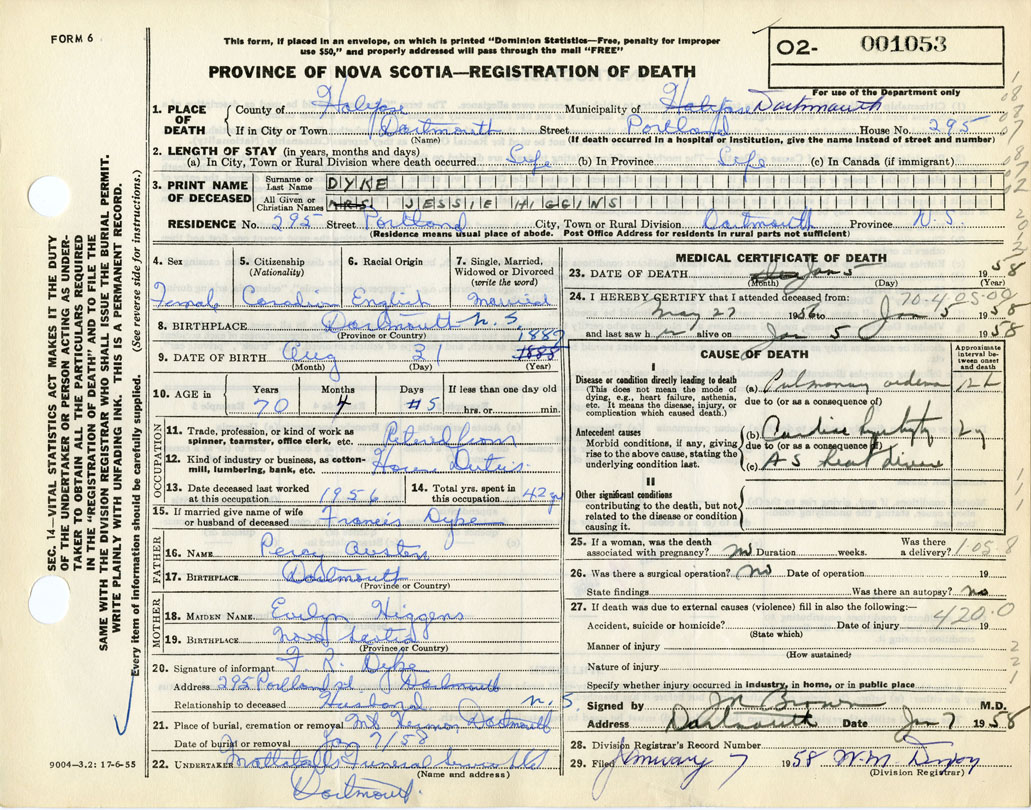 FORM 6
This form, if placed in an envelope, on which is printed "Dominion Statistics—Free, penalty for improper
use $50," and properly addressed will pass through the mail "FREE"
O2- 001053
PROVINCE OF NOVA SCOTIA—REGISTRATION OF DEATH
For use of the Department only
1. PLACE OF DEATH
County of Halifax Municipality of Halifax Dartmouth
If in City or Town Dartmouth Street Portland House No. 295
(Name) (If death occurred in a hospital or institution, give the name instead of street and number)
2. LENGTH OF STAY (in years, months and days)
(a) In City, Town or Rural Division where death occurred Life (b) In Province Life (c) In Canada (if immigrant)
3. PRINT NAME OF DECEASED
Surname or Last Name DYKE
All Given or Christian Names MRS. JESSIE HIGGINS
RESIDENCE No. 295 Street Portland City, Town or Rural Division Dartmouth Province N.S.
(Residence means usual place of abode. Post Office Address for residents in rural parts not sufficient)
4. Sex Female
5. Citizenship (Nationality) Canadian
6. Racial Origin English
7. Single, Married, Widowed or Divorced (write the word) Married
8. BIRTHPLACE Dartmouth N.S
(Province or Country)
9. DATE OF BIRTH Aug 31 1885 1887
(Month) (Day) (Year)
10. AGE in Years 70 Months 4 Days 5 If less than one day old hrs. or min.
OCCUPATION
11. Trade, profession, or kind of work as spinner, teamster, office clerk, etc. Retired from
12. Kind of industry or business, as cotton-mill, lumbering, bank, etc. Home Duties
13. Date deceased last worked at this occupation 1956
14. Total yrs. spent in this occupation 42 yr
15. If married give name of wife or husband of deceased Francis Dyke
FATHER
16. NAME Percy Austen
17. BIRTHPLACE Dartmouth
(Province or Country)
MOTHER
18. MAIDEN NAME Evelyn Higgens
19. BIRTHPLACE Nova Scotia
(Province or Country)
20. Signature of informant F. R. Dyke
Address 295 Portland st Dartmouth
Relationship to deceased Husband N.S.
21. Place of burial, cremation or removal Mt Hermon Dartmouth
Date of burial or removal Jan 7/58
22. UNDERTAKER Mattatall's Funeral
(Name and address)
Dartmouth.
MEDICAL CERTIFICATE OF DEATH
23. DATE OF DEATH Jan 5 1958
(Month) (Day) (Year)
70-4 05-09
24. I HEREBY CERTIFY that I attended deceased from:
May 27 1956 to Jan 5 1958
and last saw h er alive on Jan 5 1958
CAUSE OF DEATH
Approximate interval between onset and death
I
Disease or condition directly leading to death
(This does not mean the mode of dying, e.g., heart failure, asthenia, etc. It means the disease, injury, or complication which caused death.)
(a) Pulmonary oedema 12 h
due to (or as a consequence of)
Antecedent causes
Morbid conditions, if any, giving rise to the above cause, stating the underlying condition last.
(b) Cardiac 2 y
due to (or as a consequence of)
(c) A S heart disease
II
Other significant conditions contributing to the death, but not related to the disease or condition causing it.
25. If a woman, was the death associated with pregnancy? no Duration weeks. Was there a delivery? 1-05-8
26. Was there a surgical operation? no Date of operation 19
State findings Was there an autopsy? no
27. If death was due to external causes (violence) fill in also the following:—
420.0
Accident, suicide or homicide? Date of injury 19
(State which)
Manner of injury
(How sustained)
Nature of injury
Specify whether injury occurred in industry, in home, or in public place
Signed by JM Brown M.D.
Address Dartmouth Date Jan 7 1958
28. Division Registrar's Record Number
29. Filed January 7 1958 W.M.
(Division Registrar)
SEC. 14—VITAL STATISTICS ACT MAKES IT THE DUTY
OF THE UNDERTAKER OR PERSON ACTING AS UNDER-
TAKER TO OBTAIN ALL THE PARTICULARS REQUIRED
IN THE "REGISTRATION OF DEATH" AND TO FILE THE
SAME WITH THE DIVISION REGISTRAR WHO SHALL ISSUE THE BURIAL PERMIT.
WRITE PLAINLY WITH UNFADING INK. THIS IS A PERMANENT RECORD.
Every item of information should be carefully supplied. (See reverse side for instructions.)
9004—3.2: 17-6-55